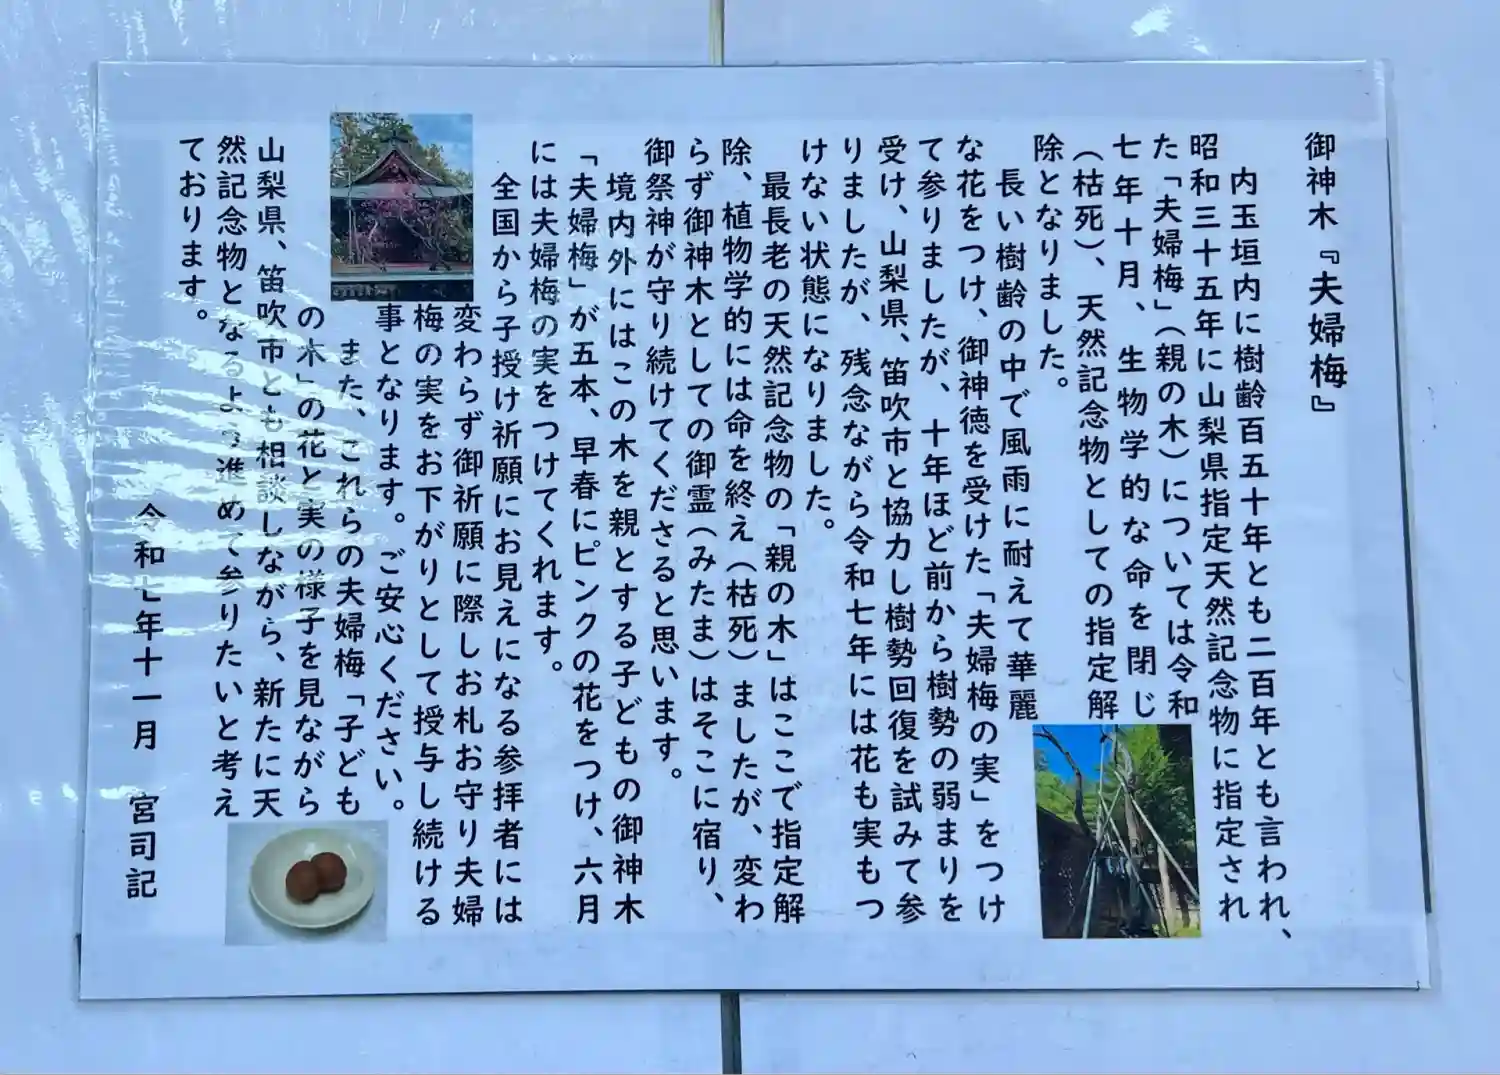 御神木『夫婦梅』
内玉垣内に樹齢百五十年とも二百年とも言われ、
昭和三十五年に山梨県指定天然記念物に指定され
た「夫婦梅」（親の木）については令和
七年十月、生物学的な命を閉じ
（枯死）、天然記念物としての指定解
除となりました。
長い樹齢の中で風雨に耐えて華麗
な花をつけ、御神徳を受けた「夫婦梅の実」をつけ
て参りましたが、十年ほど前から樹勢の弱まりを
受け、山梨県、笛吹市と協力し樹勢回復を試みて参
りましたが、残念ながら令和七年には花も実もつ
けない状態になりました。
最長老の天然記念物の「親の木」はここで指定解
除、植物学的には命を終え（枯死）ましたが、変わ
らず御神木としての御霊（みたま）はそこに宿り、
御祭神が守り続けてくださると思います。
境内外にはこの木を親とする子どもの御神木
「夫婦梅」が五本、早春にピンクの花をつけ、六月
には夫婦梅の実をつけてくれます。
全国から子授け祈願にお見えになる参拝者には
変わらず御祈願に際しお札お守り夫婦
梅の実をお下がりとして授与し続ける
事となります。ご安心ください。
また、これらの夫婦梅「子ども
の木」の花と実の様子を見ながら
山梨県、笛吹市とも相談しながら、新たに天
然記念物となるよう進めて参りたいと考え
ております。
令和七年十一月 宮司記